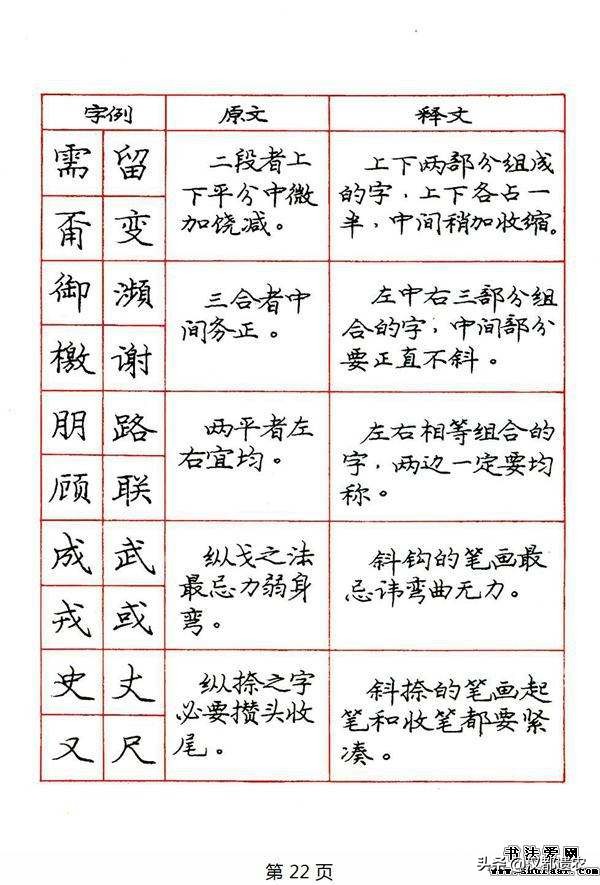 字例 原文 释文
需 留
变
二段者上
下平分中微
加饶减。
上下两部分组成
的字，上下各占一
半，中间稍加收缩。
御 瀕
檄 谢
三合者中
间务正。
左中右三部分组
合的字，中间部分
要正直不斜。
朋 路
顾 联
两平者左
右宜均。
左右相等组合的
字，两边一定要均
称。
成 武
戎 或
纵戈之法
最忌力弱身
弯。
斜钩的笔画最
忌讳弯曲无力。
史 丈
又 尺
纵捺之字
必要攒头收
尾。
斜捺的笔画起
笔和收笔都要紧
凑。
第 22 页
书法爱网
头条@汉都遗农